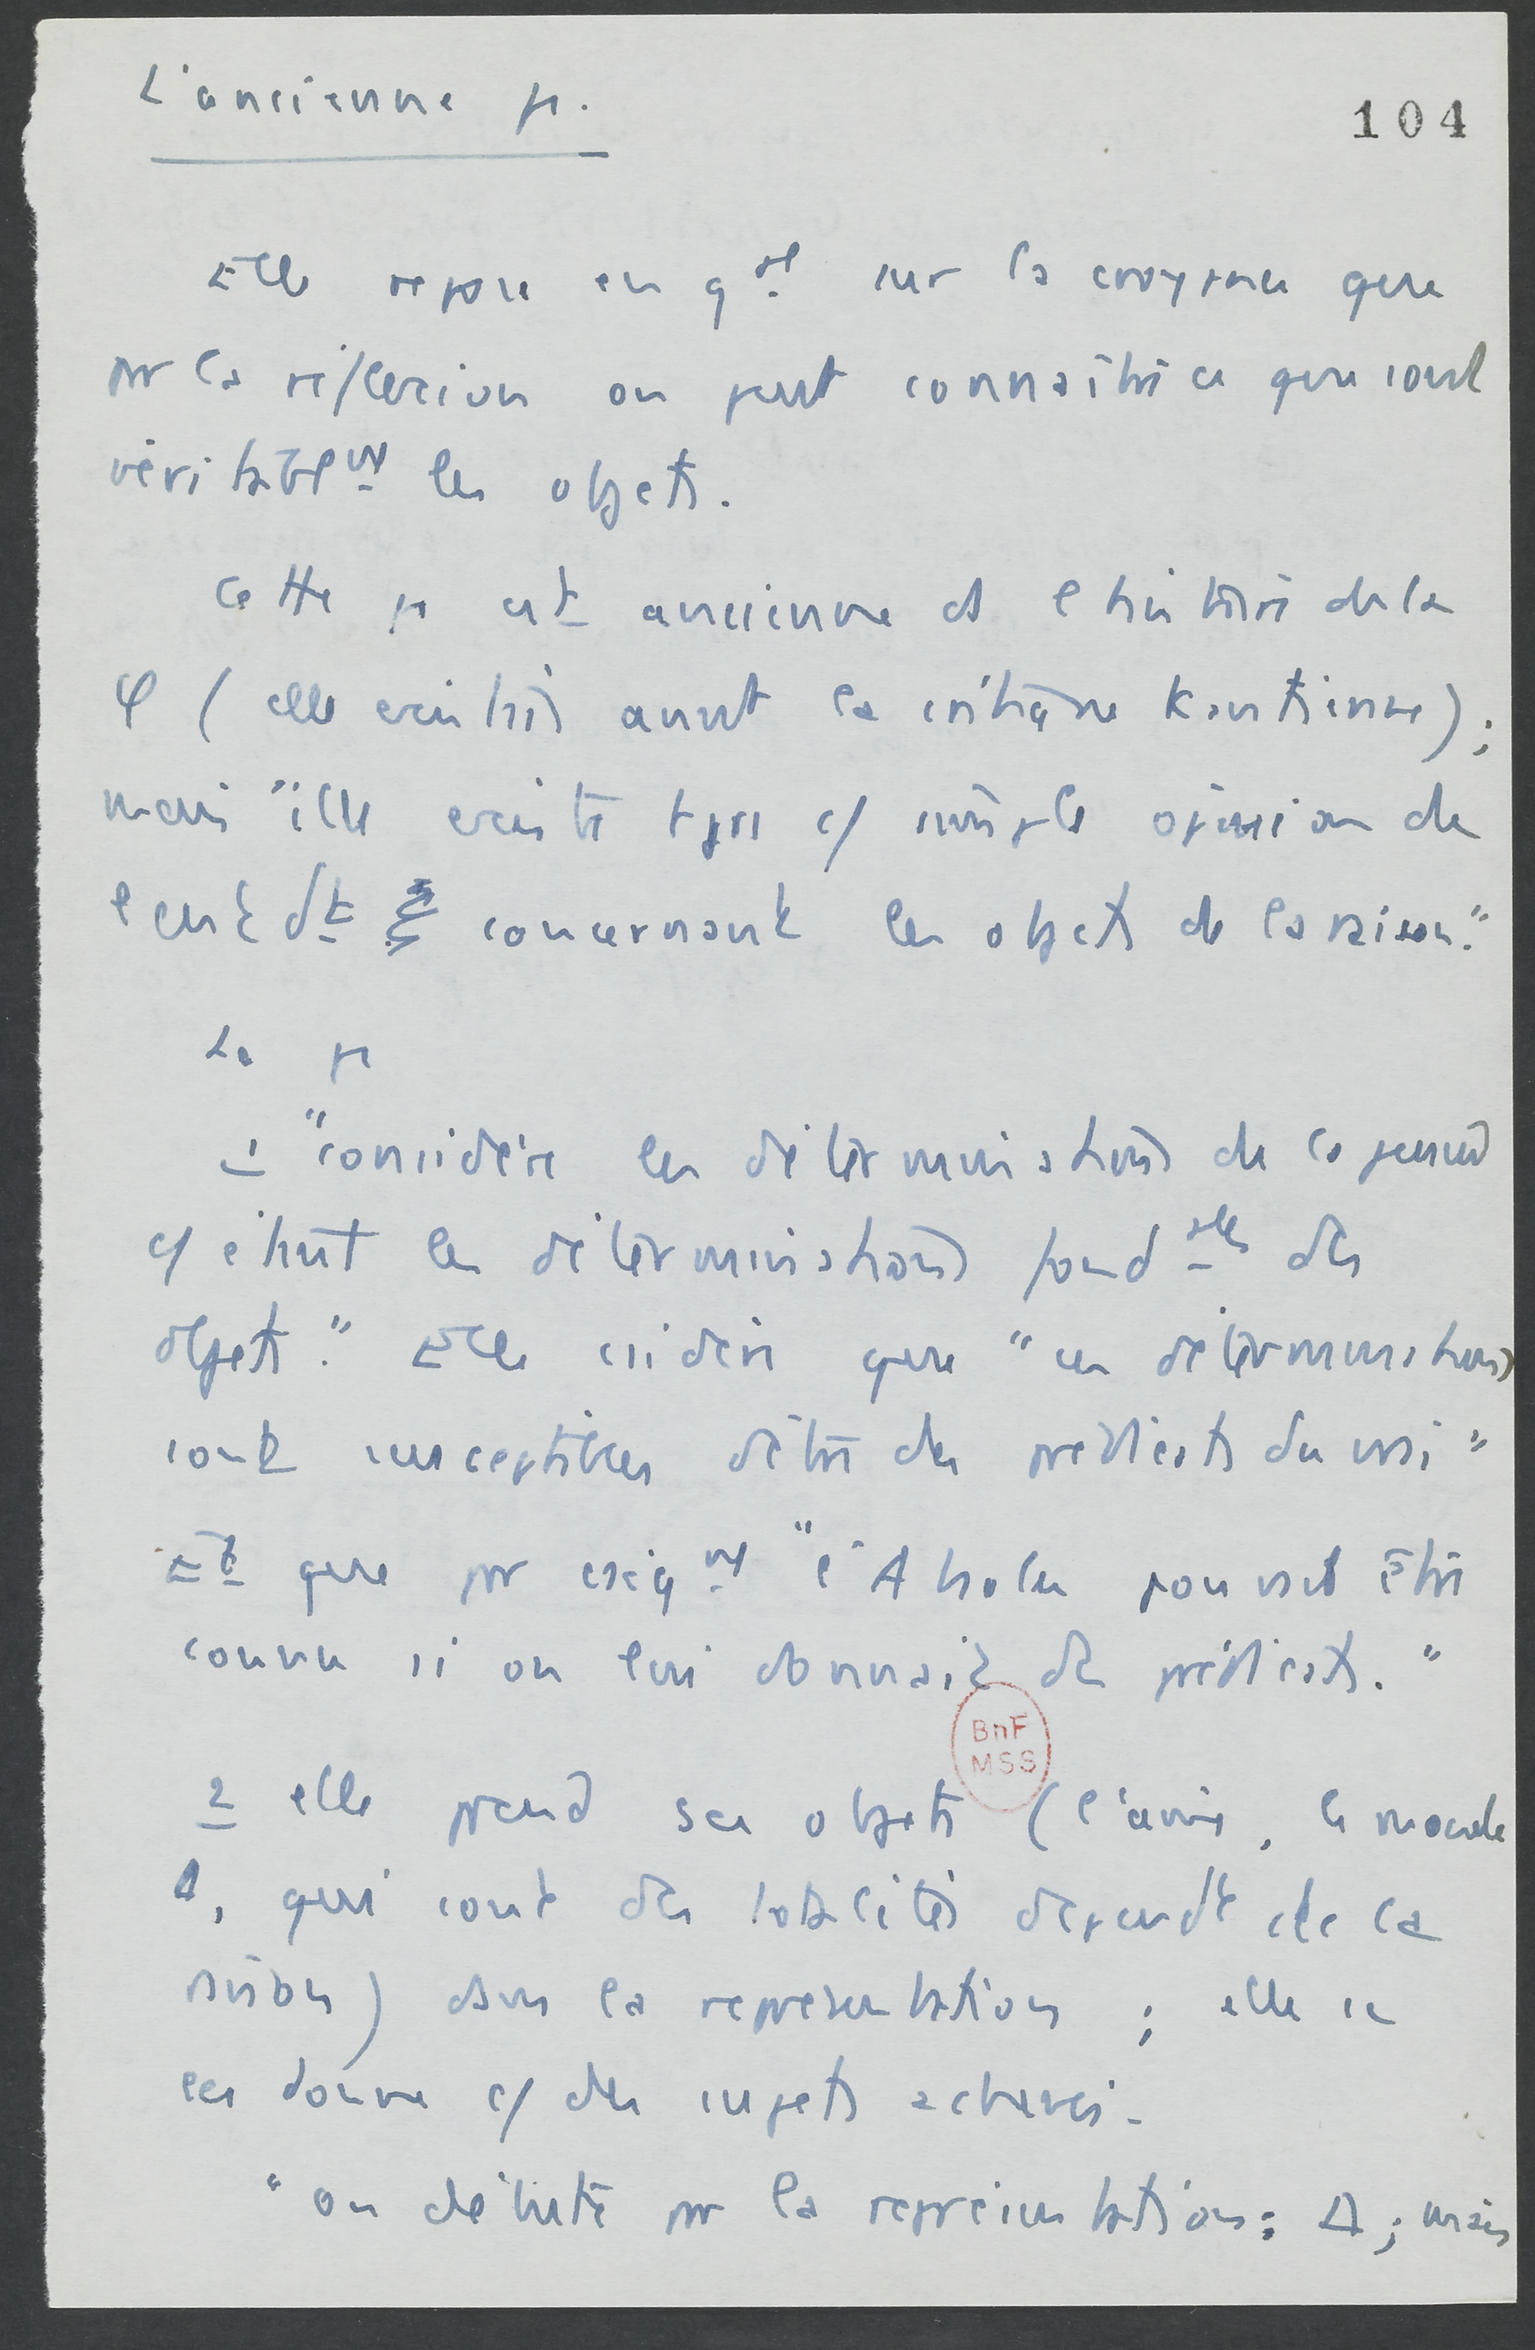 L'ancienne μ.
104
Elle repose en gal sur la croyance que
par la réflexion on peut connaître ce que sont
véritablmt les objets.
Cette μ est ancienne ds l'histoire de la
φ (elle existait avant la critique kantienne) ;
mais "elle existe tjrs c/ simple opinion de
l'entdt concernant les objets de la raison."
La μ
1 "considère les déterminations de la pensée
c/ étant les déterminations fondales des
objets." Elle csidère que "ces déterminations
sont susceptibles d'être des prédicats du vrai"
Et que par cséqnt "l'Absolu pouvait être
connu si on lui donnait des prédicats."
BnF
MSS
2 elle prend ses objets (l'âme, le monde
Δ, qui sont des totalités dépendt de la
raison) dans la représentation ; elle se
les donne c/ des sujets achevés.
"on débute par la représentation : Δ ; mais